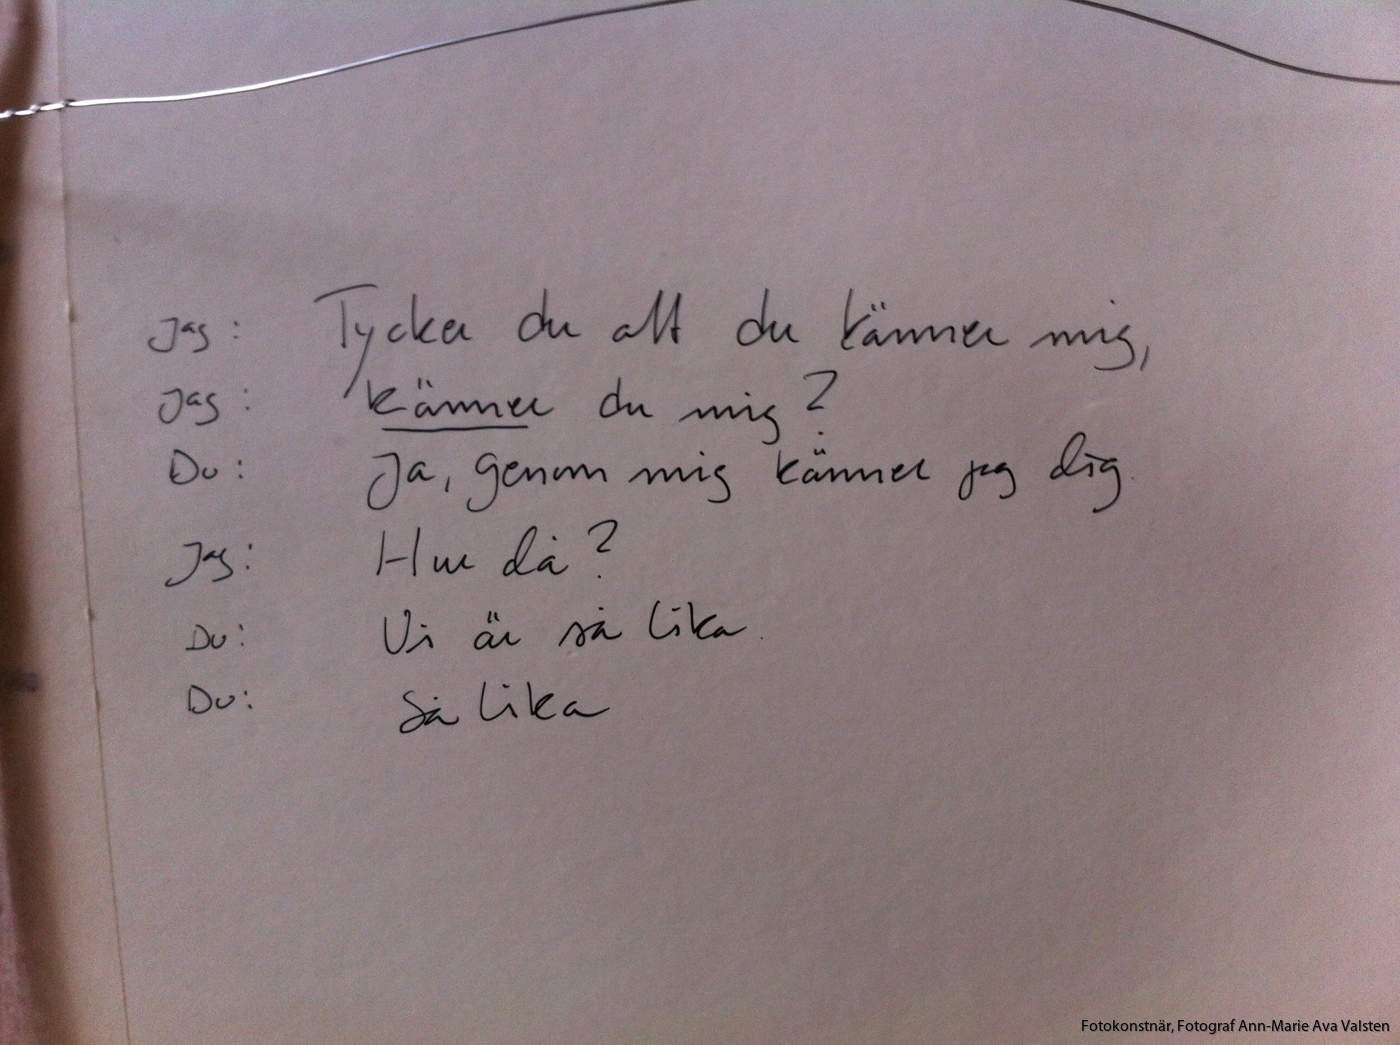 Jag: Tycker du att du känner mig,
Jag: känner du mig?
Du: Ja, genom mig känner jag dig.
Jag: Hur då?
Du: Vi är så lika.
Du: Så lika
Fotokonstnär, Fotograf Ann-Marie Ava Valsten